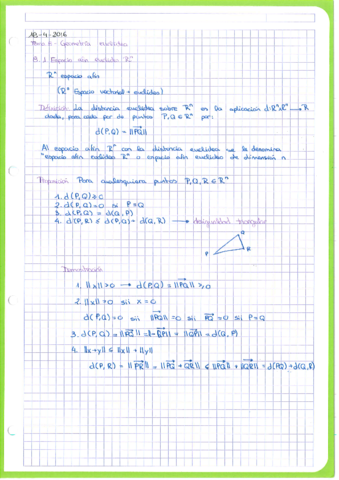 18-4-2016
Tema 8 - Geometría euclídea
8.1 Espacio afín euclídeo Rⁿ
Rⁿ espacio afín
(Rⁿ Espacio vectorial + euclídeo)
Definición La distancia euclídea sobre Rⁿ es la aplicación d:RⁿxRⁿ → R
dada, para cada par de puntos P,Q ∈ Rⁿ por:
d(P,Q) = ||PQ||
Al espacio afín Rⁿ con la distancia euclídea se le denomina
"espacio afín euclídeo Rⁿ o espacio afín euclídeo de dimensión n
Proposición Para cualesquiera puntos P,Q,R ∈ Rⁿ
1. d(P,Q) ≥ 0
2. d(P,Q) = 0 sii P=Q
3. d(P,Q) = d(Q,P)
4. d(P,R) ≤ d(P,Q) + d(Q,R) → desigualdad triangular
Q
P R
Demostración
1. ||x|| ≥ 0 → d(P,Q) = ||PQ|| ≥ 0
2. ||x|| = 0 sii x = 0
d(P,Q) = 0 sii ||PQ|| = 0 sii PQ = 0 sii P=Q
3. d(P,Q) = ||PQ|| = ||-QP|| = ||QP|| = d(Q,P)
4. ||x+y|| ≤ ||x|| + ||y||
d(P,R) = ||PR|| = ||PQ + QR|| ≤ ||PQ|| + ||QR|| = d(P,Q) + d(Q,R)